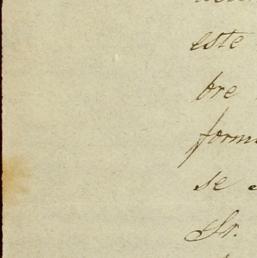 este
bre
form
se
Sr.